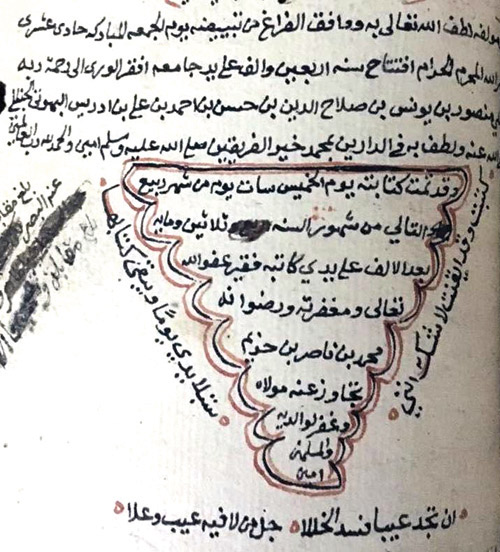 مؤلفه لطف الله تعالى به ووافق الفراغ من تبييضه يوم الجمعه المباركه حادي عشرى
الله المحرم الحرام افتتاح سنه اربعين والف على يد جامعه افقر الورى الى رحمة ربه
منصور بن يونس بن صلاح الدين بن حسن بن احمد بن علي بن ادريس البهوتي الحنبلي
عنه ولطف به في الدارين بمحمد خير الفريقين صلى الله عليه وسلم امين والحمد لله رب العالمين
وقد تمت كتابته يوم الخميس سات يوم من شهر ربيع
التالي من شهور السنه وثلاثين ومايه
بعد الالف على يدي كاتبه فقير عفو الله
تعالى ومغفرته ورضوانه
محمد بن ناصر بن حزيم
تجاوز عنه مولاه
وغفر لوالديه
والمسلمين
امين
كتبت وقد ايقنت لا شك انني
ستبلا يدي يوما ويبقى كتابها
بلغ مقابلة
ان تجد عيبا فسد الخللا جل من لا فيه عيب وعلا